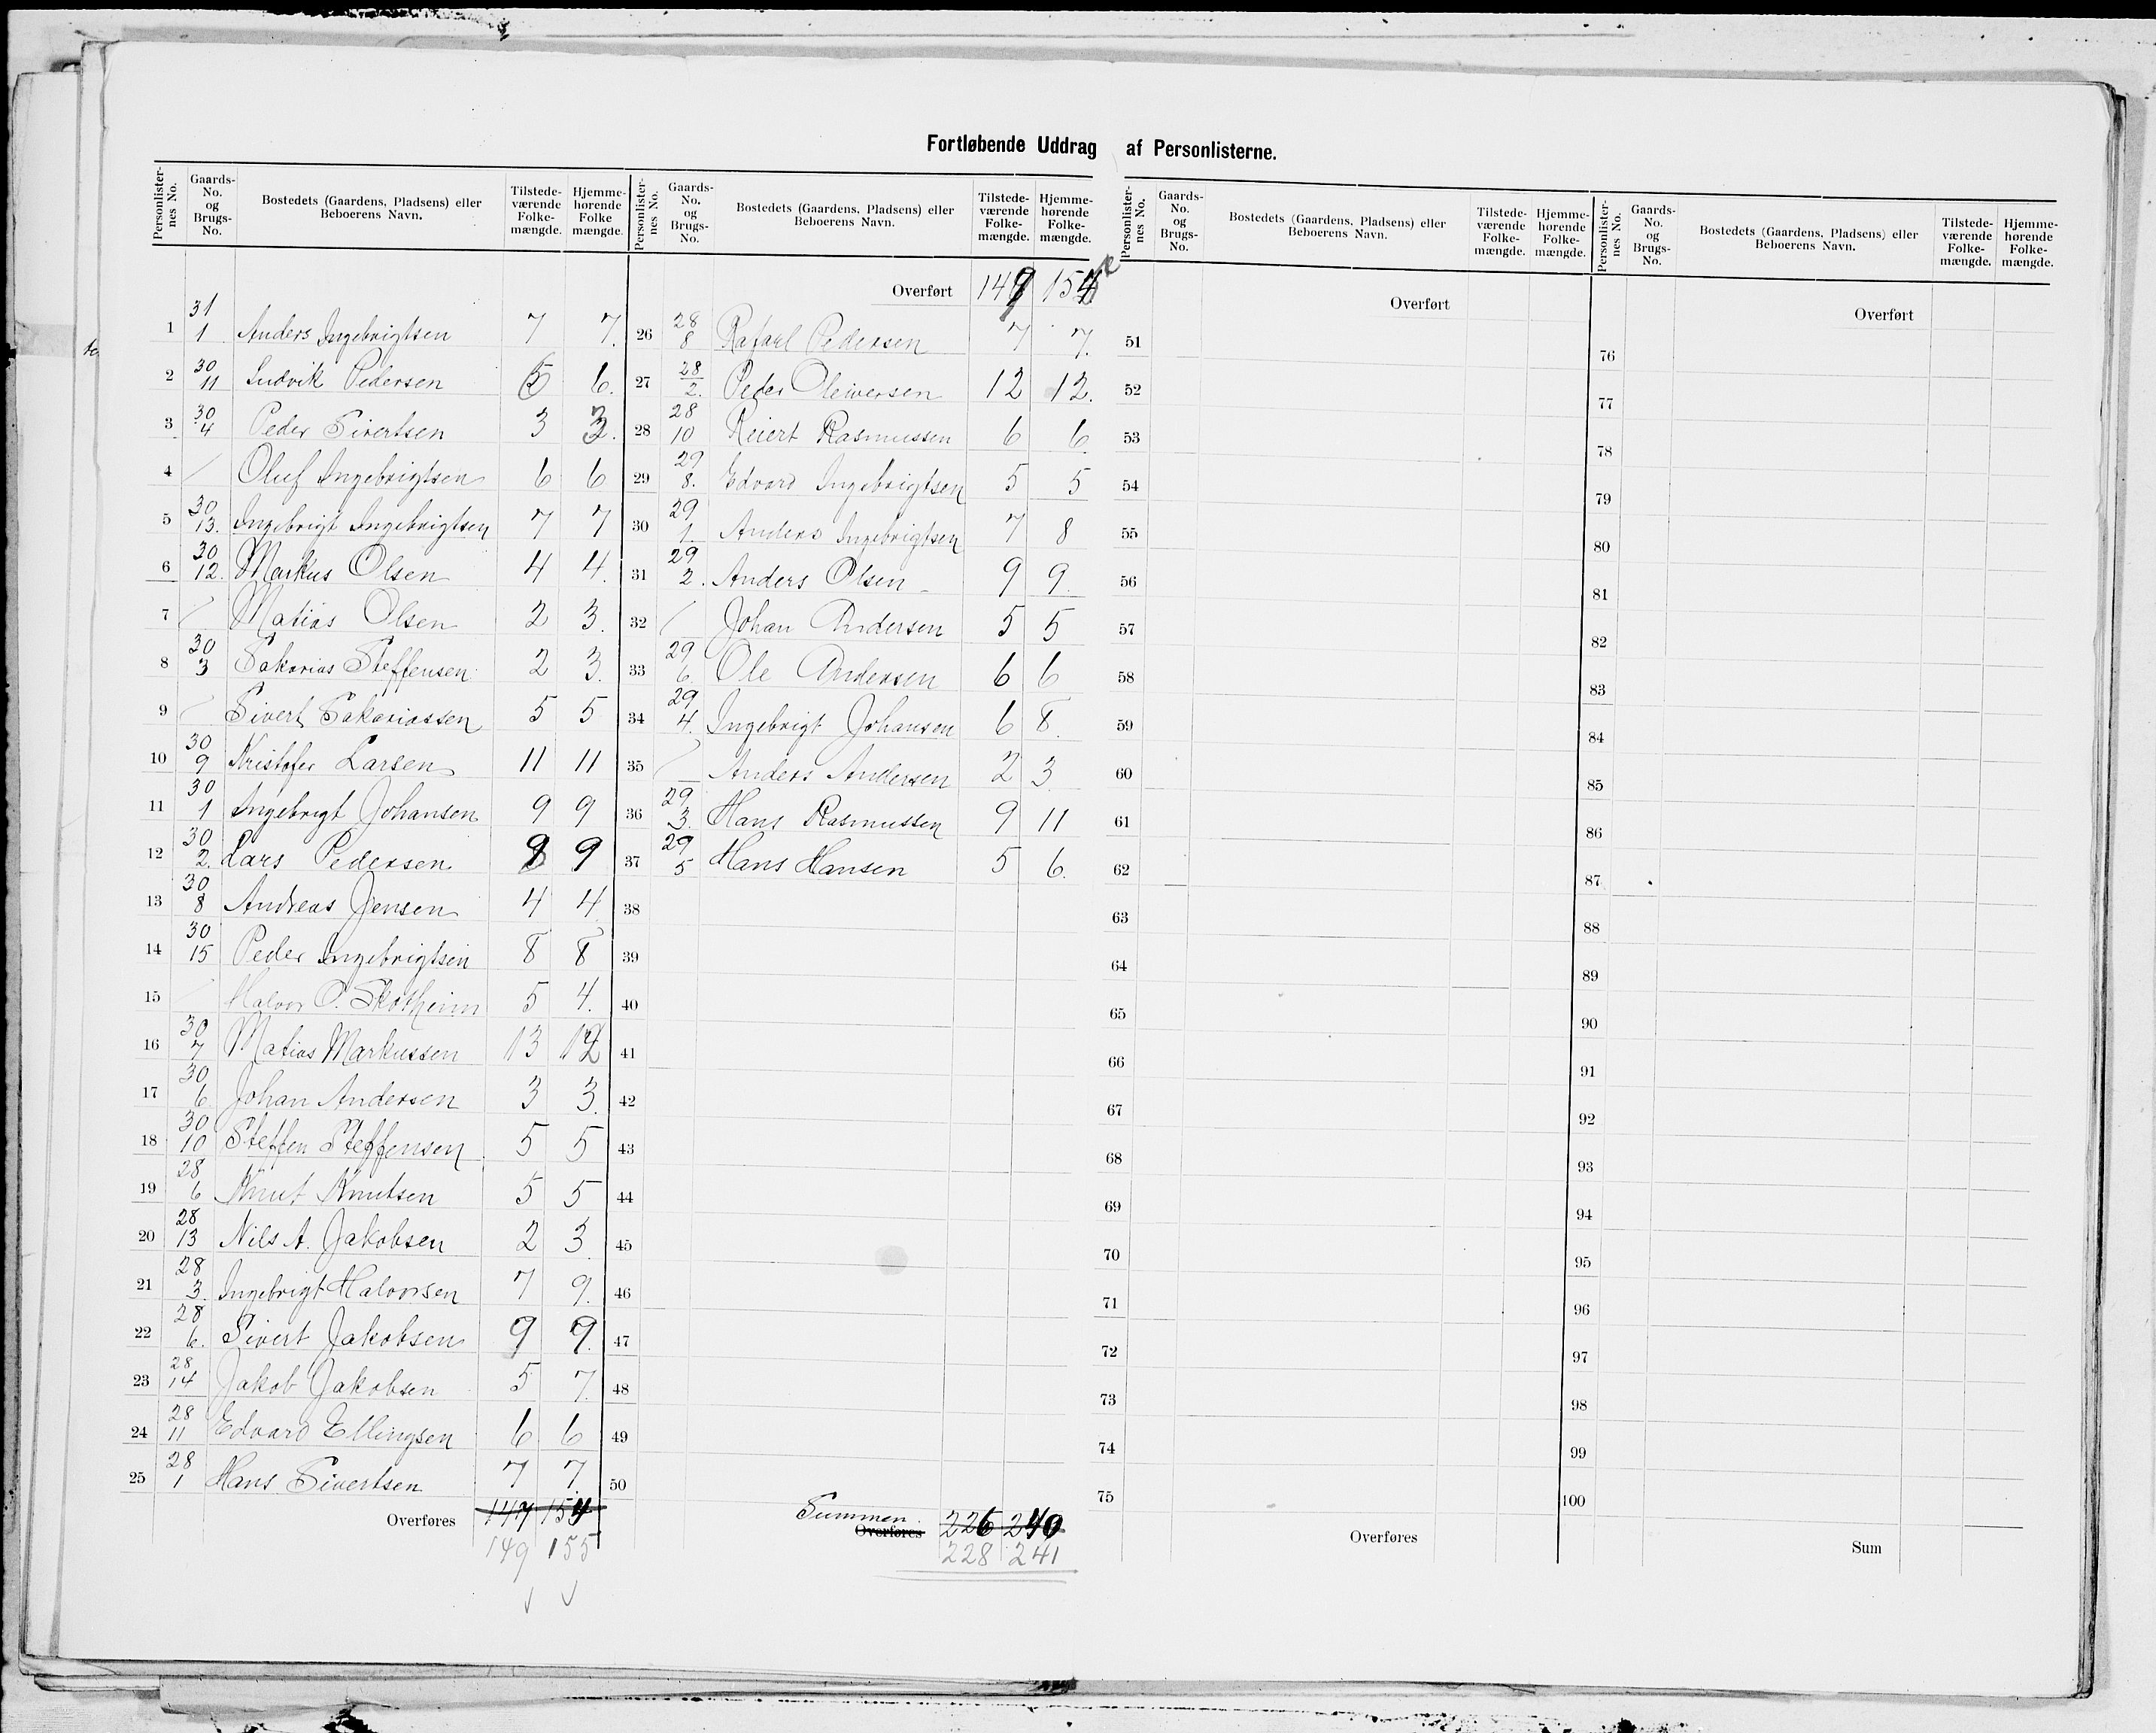 Fortløbende Uddrag af Personlisterne.
Personlisternes No. Gaards-No. og Brugs-No. Bostedets (Gaardens, Pladsens) eller Beboerens Navn. Tilstedeværende Folkemængde. Hjemmehørende Folke mængde.
1 31/1 Anders Ingebrigtsen 7 7.
2 30/11 Ludvik Pedersen 6.
3 30/4 Peder Sivertsen 3 3.
4 / Oluf Ingebrigtsen 6 6
5 30/13. Ingebrigt Ingebrigtsen 7 7
6 30/12. Markus Olsen 4 4.
7 / Matias Olsen 2 3.
8 30/3 Sakarias Steffensen 2 3.
9 / Sivert Sakariassen 5 5
10 30/9 Kristofer Larsen 11 11
11 30/1 Ingebrigt Johansen 9 9
12 30/2. Lars Pedersen 9 9
13 30/8 Andreas Jensen 4 4
14 30/15 Peder Ingebrigtsen 8 8
15 / Halvor O. Skotheim 5 4.
16 30/7 Matias Markussen 13 12
17 30/6 Johan Andersen 3 3.
18 30/10 Steffen Steffensen 5 5
19 28/6 Knut Knutsen 5 5
20 28/13 Nils A. Jakobsen 2 3.
21 28/3. Ingebrigt Halvorsen 7 9.
22 28/6. Sivert Jakobsen 9 9.
23 28/14 Jakob Jakobsen 5 7.
24 28/11 Edvard Ellingsen 6 6
25 28/1 Hans Sivertsen 7 7.
Overføres 147 154
149 155
Personlisternes No. Gaards-No. og Brugs-No. Bostedets (Gaardens, Pladsens) eller Beboerens Navn. Tilstedeværende Folkemængde. Hjemmehørende Folkemængde.
Overført 149 154
26 28/8 Rafael Pedersen 7 7.
27 28/2. Peder Oleiversen 12 12.
28 28/10 Reiert Rasmussen 6 6
29 29/8. Edvard Ingebrigtsen 5 5
30 29/1. Anders Ingebrigtsen 7 8
31 29/2. Anders Olsen 9 9.
32 / Johan Andersen 5 5
33 29/6. Ole Andersen 6 6
34 29/4. Ingebrigt Johansen 6 8.
35 / Anders Andersen 2 3
36 29/3. Hans Rasmussen 9 11
37 29/5 Hans Hansen 5 6.
38
39
40
41
42
43
44
45
46
47
48
49
50
Summen. Overføres 226 240
228 241
Personlisternes No. Gaards-No. og Brugs-No. Bostedets (Gaardens, Pladsens) eller Beboerens Navn. Tilstedeværende Folkemængde. Hjemmehørende Folkemængde.
Overført
51
52
53
54
55
56
57
58
59
60
61
62
63
64
65
66
67
68
69
70
71
72
73
74
75
Overføres
Personlisternes No. Gaards-No. og Brugs-No. Bostedets (Gaardens, Pladsens) eller Beboerens Navn. Tilstedeværende Folkemængde. Hjemmehørende Folkemængde.
Overført
76
77
78
79
80
81
82
83
84
85
86
87
88
89
90
91
92
93
94
95
96
97
98
99
100
Sum